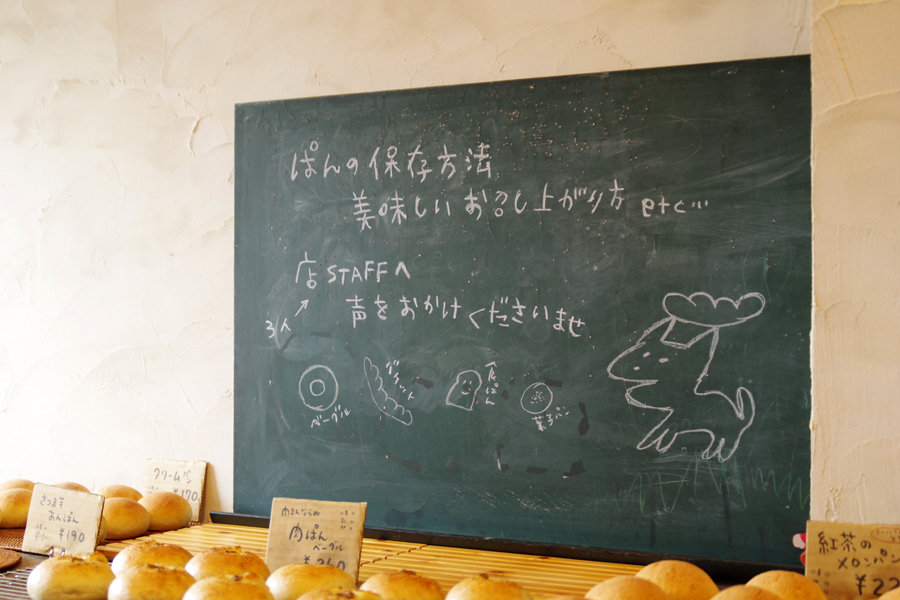 ぱんの保存方法
美味しいお召し上がり方 etc…
店STAFFへ
3人
声をおかけくださいませ
ベーグル
バゲット
食ぱん
菓子パン
クリームパン
¥170
さつま芋
あんぱん
¥190
肉まんならぬ
肉ぱん
ベーグル
¥260
紅茶の
メロンパン